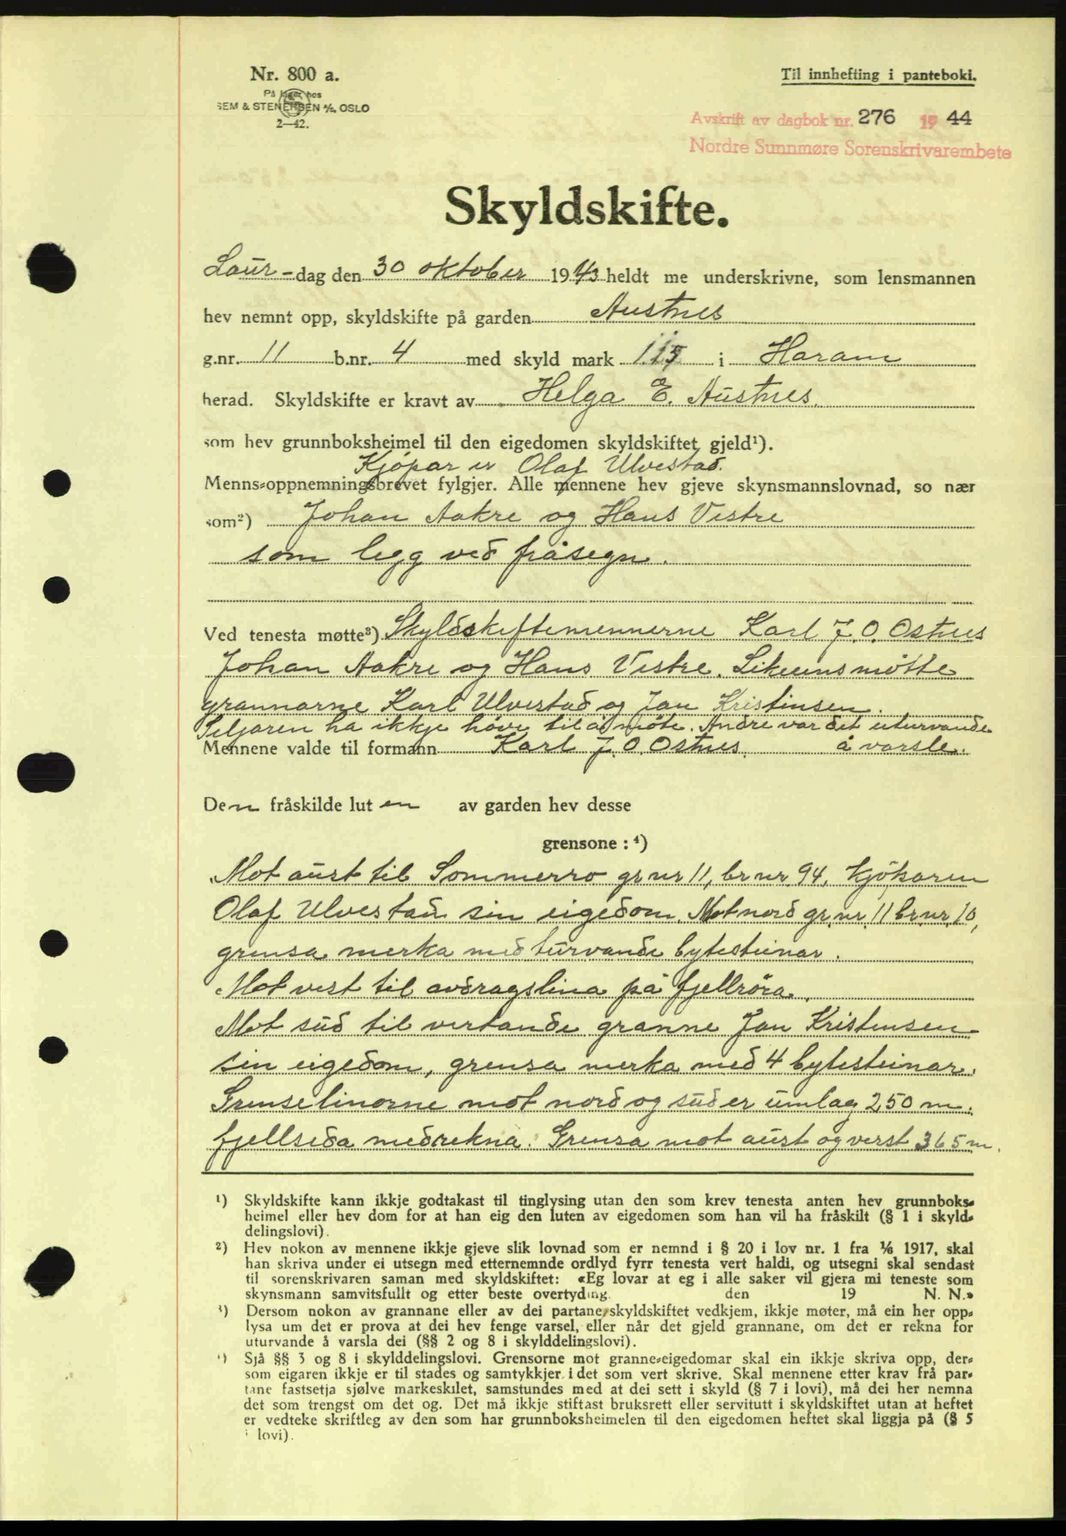 Nr. 800 a.
På lager hos
SEM & STENERSEN A/S, OSLO
2—42.
Til innhefting i panteboki.
Avskrift av dagbok nr. 276 1944
Nordre Sunnmøre Sorenskrivarembete
Skyldskifte.
Laur-dag den 30 oktober 1943 heldt me underskrivne, som lensmannen
hev nemnt opp, skyldskifte på garden Austnes
g.nr. 11 b.nr. 4 med skyld mark i Haram
herad. Skyldskifte er kravt av Helga E. Austnes.
som hev grunnboksheimel til den eigedomen skyldskiftet gjeld¹).
Kjøpar er Olaf Ulvestad.
Menns-oppnemningsbrevet fylgjer. Alle mennene hev gjeve skynsmannslovnad, so nær
som²) Johan Aakre og Hans Vestre
som legg ved fråsegn.
Ved tenesta møtte³) Skyldskiftemennerne Karl J. O. Ostnes
Johan Aakre og Hans Vestre. Likeeins møtte
grannarne Karl Ulvestad og Jan Kristinsen.
Seljaren ha ikkje høve til å møte. Andre var det uturvande
Mennene valde til formann Karl J. O. Ostnes. å varsle.
Den fråskilde luten av garden hev desse
grensone : ⁴)
Mot aust til Sommerro gr nr 11, br nr 94, kjøparen
Olaf Ulvestad sin eigedom. Mot nord gr. nr. 11 br. nr. 10,
grensa merka med turvande bytesteinar.
Mot vest til avdragslina på fjellrøra.
Mot sud til vertande granne Jan Kristensen
sin eigedom, grensa merka med 4 bytesteinar.
Grenselinorne mot nord og sud er umlag 250 m.
fjellsida medrekna. Grensa mot aust og verst 365 m.
¹) Skyldskifte kann ikkje godtakast til tinglysing utan den som krev tenesta anten hev grunnboks-
heimel eller hev dom for at han eig den luten av eigedomen som han vil ha fråskilt (§ 1 i skyld-
delingslovi).
²) Hev nokon av mennene ikkje gjeve slik lovnad som er nemnd i § 20 i lov nr. 1 fra 1/6 1917, skal
han skriva under ei utsegn med etternemnde ordlyd fyrr tenesta vert haldi, og utsegni skal sendast
til sorenskrivaren saman med skyldskiftet: «Eg lovar at eg i alle saker vil gjera mi teneste som
skynsmann samvitsfullt og etter beste overtyding. den 19 N. N.»
³) Dersom nokon av grannane eller av dei partane skyldskiftet vedkjem, ikkje møter, må ein her opp-
lysa um det er prova at dei hev fenge varsel, eller når det gjeld grannane, om det er rekna for
uturvande å varsla dei (§§ 2 og 8 i skylddelingslovi).
⁴) Sjå §§ 3 og 8 i skylddelingslovi. Grensorne mot granne-eigedomar skal ein ikkje skriva opp, der-
som eigaren ikkje er til stades og samtykkjer i det som vert skrive. Skal mennene etter krav frå par-
tane fastsetja sjølve markeskilet, samstundes med at dei sett i skyld (§ 7 i lovi), må dei her nemna
det som trengst om det og. Det må ikkje stiftast bruksrett eller servitutt i skyldskiftet utan at heftet
er vedteke skriftleg av den som har grunnboksheimelen til den eigedomen heftet skal liggja på (§ 5
i lovi).